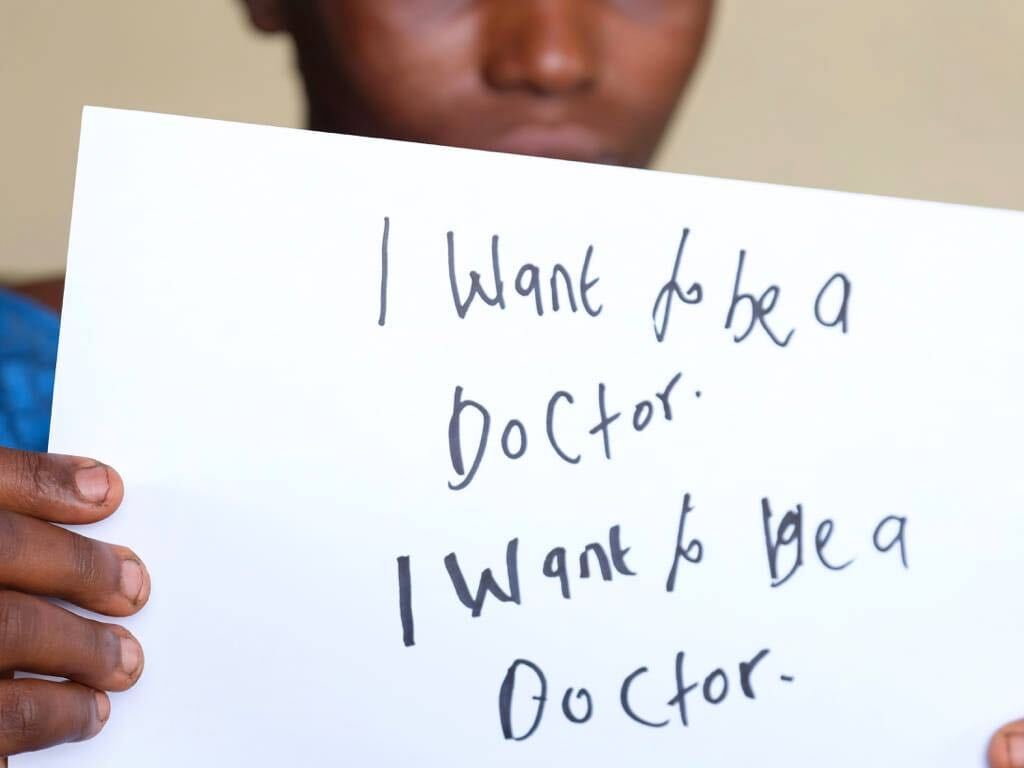 I Want to be a
Doctor.
I Want to be a
Doctor.